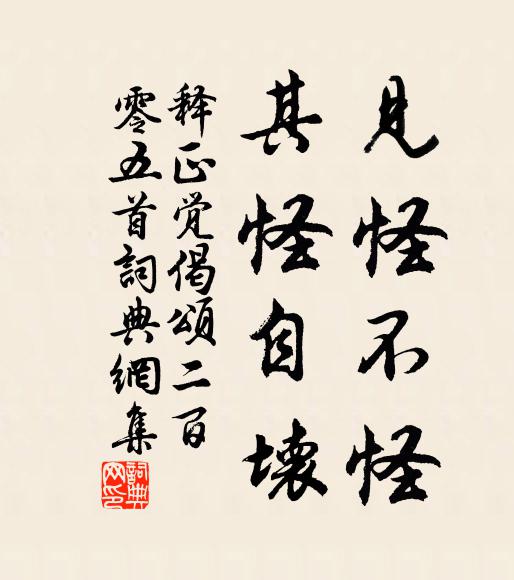 見怪不怪
其怪自壞
释正觉偈頌二百
零五首詞典網集
詞典网印